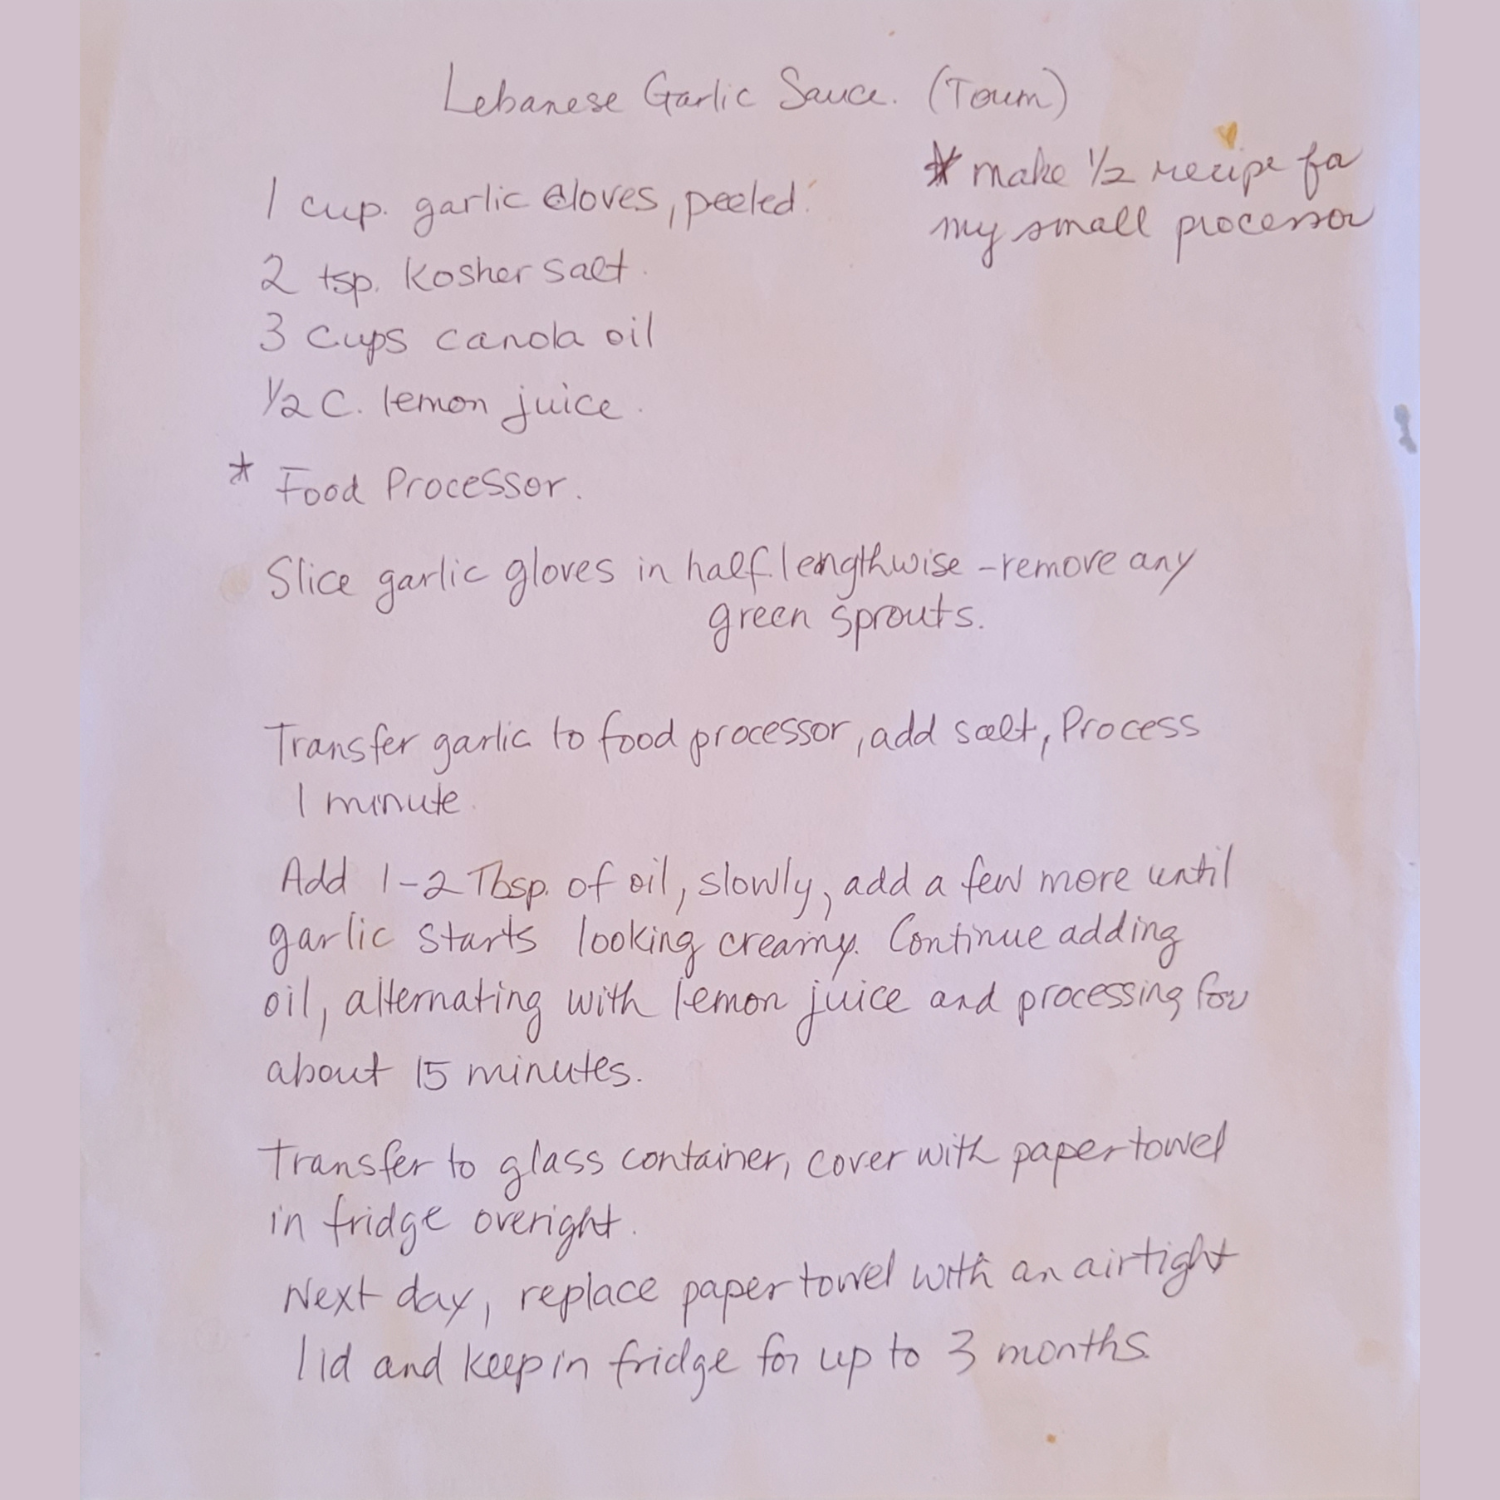 Lebanese Garlic Sauce. (Toum)
* make 1/2 recipe for
my small processor
1 cup. garlic cloves, peeled.
2 tsp. Kosher salt.
3 cups canola oil
1/2 C. lemon juice.
* Food Processor.
Slice garlic gloves in half lengthwise - remove any
green sprouts.
Transfer garlic to food processor, add salt, Process
1 minute.
Add 1-2 Tbsp. of oil, slowly, add a few more until
garlic starts looking creamy. Continue adding
oil, alternating with lemon juice and processing for
about 15 minutes.
Transfer to glass container, cover with paper towel
in fridge overight.
Next day, replace paper towel with an airtight
lid and keep in fridge for up to 3 months.